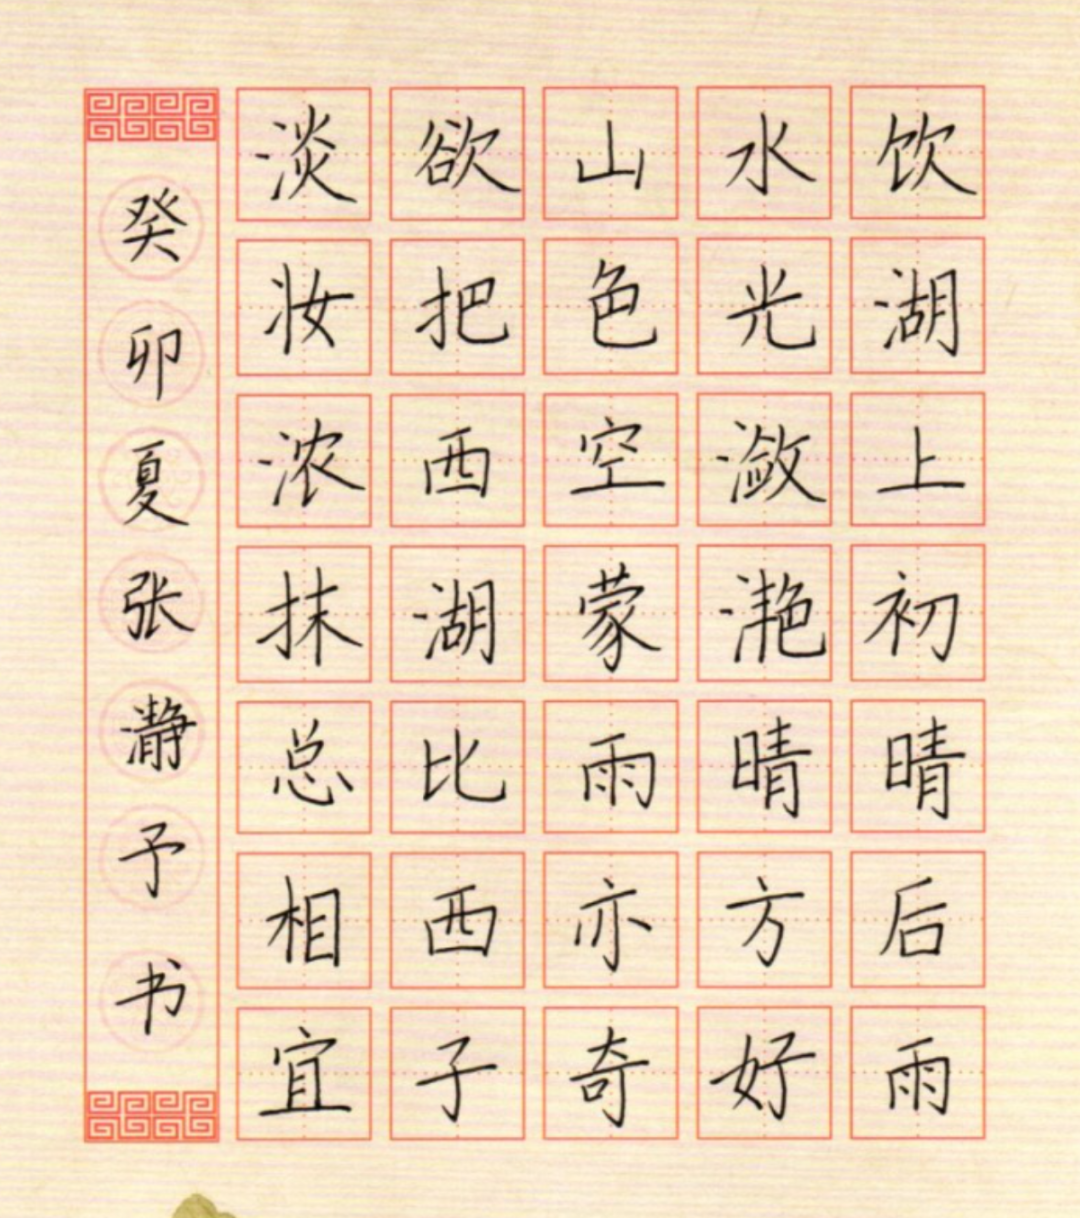 饮湖上初晴后雨
水光潋滟晴方好
山色空蒙雨亦奇
欲把西湖比西子
淡妆浓抹总相宜
癸卯夏张瀞予书